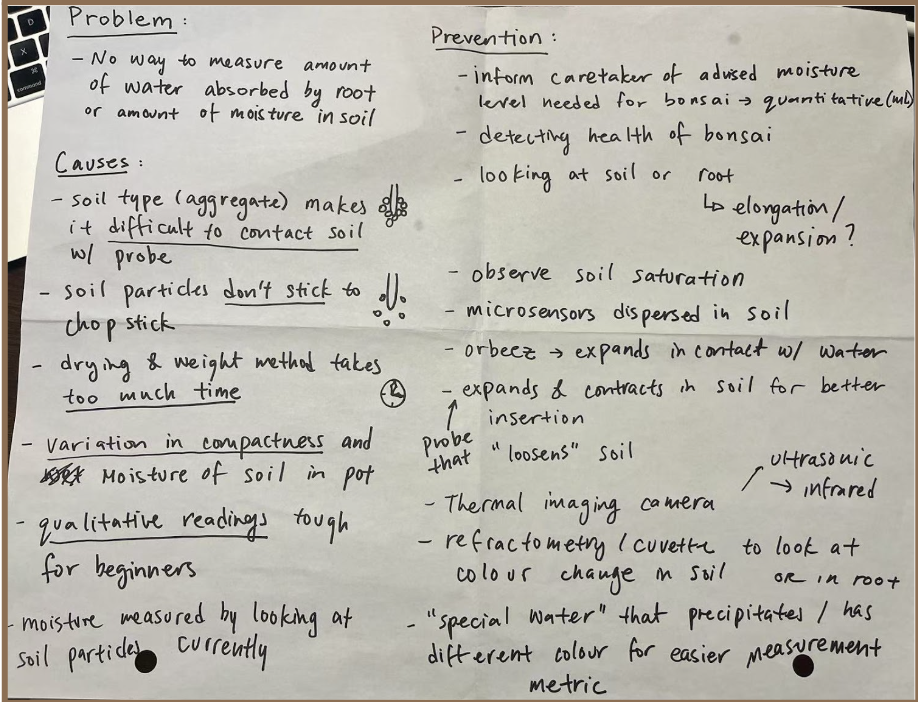 Problem :
- No way to measure amount
of water absorbed by root
or amount of moisture in soil
Causes :
- soil type (aggregate) makes
it difficult to contact soil
w/ probe
- soil particles don't stick to
chop stick
- drying & weight method takes
too much time
- variation in compactness and
Moisture of soil in pot
- qualitative readings tough
for beginners
- moisture measured by looking at
soil particles currently
Prevention :
- inform caretaker of advised moisture
level needed for bonsai → quantitative (mL)
- detecting health of bonsai
- looking at soil or root
↳ elongation /
expansion ?
- observe soil saturation
- microsensors dispersed in soil
- orbeez → expands in contact w/ water
- expands & contracts in soil for better
insertion
probe
that "loosens" soil
- Thermal imaging camera
ultrasonic
→ infrared
- refractometry / cuvette to look at
colour change in soil OR in root
- "special water" that precipitates / has
different colour for easier measurement
metric
D
X
⌘
command